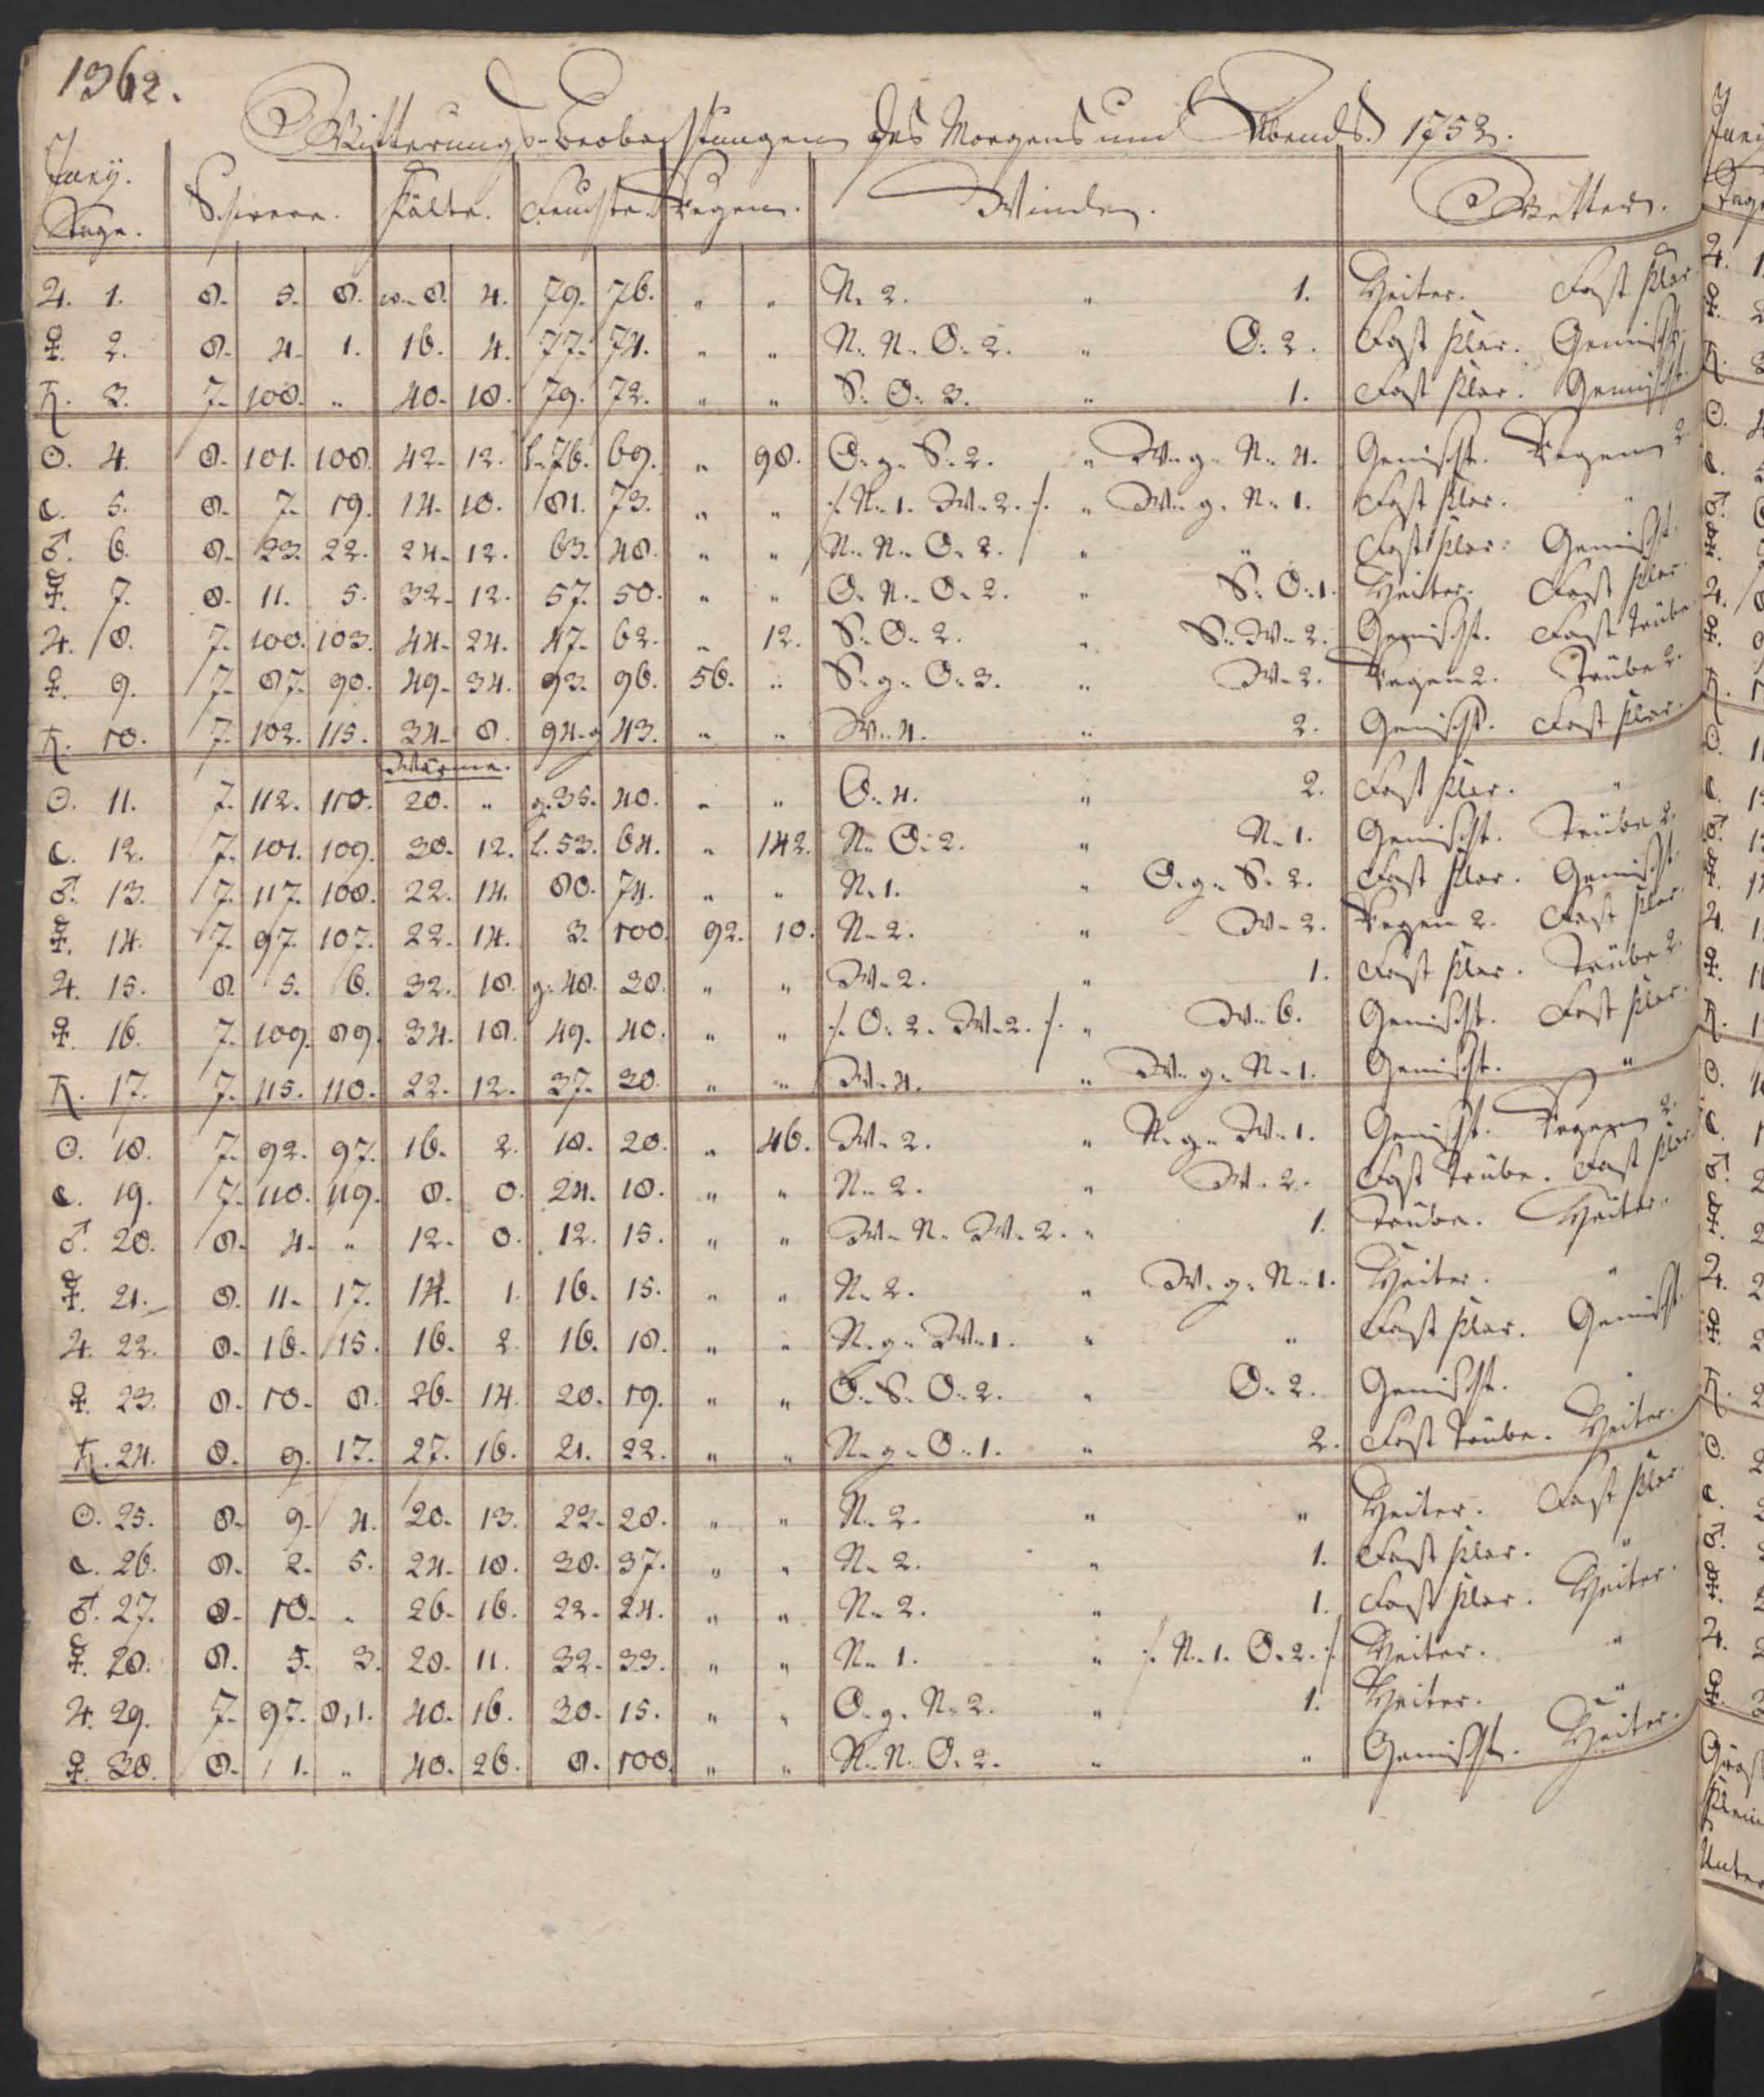 1362.
Witterungs-beobachtungen des Morgens und Abends. 1752.
Junij. Tage. Schwere. Kälte. Feuchte. Regen. Winden. Wetter.
♃. 1. 8. 5. 8. w. 8. 4. 79. 76. " " N. 2. " 1. Heiter. Fast klar.
♀. 2. 8. 4. 1. 16. 4. 77. 74. " " N. N. O. 2. " O. 2. Fast klar. Gemischt.
♄. 3. 7. 108. " 40. 18. 79. 72. " " S. O. 3. " 1. Fast klar. Gemischt.
☉. 4. 8. 101. 108. 42. 12. l. 76. 69. " 98. O. g. S. 2. " W. g. N. 4. Gemischt. Regen 2.
☾. 5. 8. 7. 19. 14. 10. 81. 73. " " /. N. 1. W. 2. /. " W. g. N. 1. Fast klar. "
♂. 6. 8. 23. 22. 24. 12. 63. 48. " " N. N. O. 2. " " Fast klar. Gemischt.
☿. 7. 8. 11. 5. 32. 12. 57. 50. " " O. N. O. 2. " S. O. 1. Heiter. Fast klar.
♃. 8. 7. 100. 103. 44. 24. 47. 62. " 12. S. O. 2. " S. W. 2. Gemischt. Fast trübe.
♀. 9. 7. 87. 90. 49. 34. 93. 96. 56. " S. g. O. 3. " W. 2. Regen 2. Trübe 2.
♄. 10. 7. 102. 115. 34. 8. 94. g 43. " " W. 4. " 2. Gemischt. Fast klar.
Wärme.
☉. 11. 7. 112. 110. 20. " g. 35. 40. " " O. 4. " 2. Fast klar. "
☾. 12. 7. 101. 109. 30. 12. l. 53. 64. " 142. N. O. 2. " N. 1. Gemischt. Trübe 2.
♂. 13. 7. 117. 108. 22. 14. 80. 74. " " N. 1. " O. g. S. 2. Fast klar. Gemischt.
☿. 14. 7. 97. 107. 22. 14. 3. 100. 92. 10. N. 2. " W. 2. Regen 2. Fast klar.
♃. 15. 8. 5. 6. 32. 18. g. 48. 38. " " W. 2. " 1. Fast klar. Trübe 2.
♀. 16. 7. 109. 89. 34. 18. 49. 40. " " /. O. 2. W. 2. /. " W. 6. Gemischt. Fast klar.
♄. 17. 7. 115. 110. 22. 12. 37. 30. " " W. 4. " W. g. N. 1. Gemischt. "
☉. 18. 7. 92. 97. 16. 2. 18. 20. " 46. W. 2. " N. g. W. 1. Gemischt. Regen 2.
☾. 19. 7. 110. 119. 8. 0. 24. 18. " " N. 2. " W. 2. Fast trübe. Fast klar.
♂. 20. 8. 4. " 12. 0. 12. 15. " " W. N. W. 2. " 1. Trübe. Heiter.
☿. 21. 8. 11. 17. 14. 1. 16. 15. " " N. 2. " W. g. N. 1. Heiter. "
♃. 22. 8. 16. 15. 16. 2. 16. 18. " " N. g. W. 1. " " Fast klar. Gemischt.
♀. 23. 8. 10. 8. 26. 14. 20. 19. " " O. S. O. 2. " O. 2. Gemischt. "
♄. 24. 8. 9. 17. 27. 16. 21. 22. " " N. g. O. 1. " 2. Fast trübe. Heiter.
☉. 25. 8. 9. 4. 20. 13. 22. 28. " " N. 2. " " Heiter. Fast klar.
☾. 26. 8. 2. 5. 24. 18. 38. 37. " " N. 2. " 1. Fast klar. "
♂. 27. 8. 10. " 26. 16. 22. 24. " " N. 2. " 1. Fast klar. Heiter.
☿. 28. 8. 5. 3. 28. 11. 32. 33. " " N. 1. " /. N. 1. O. 2. /. Heiter. "
♃. 29. 7. 97. 8,1. 40. 16. 30. 15. " " O. g. N. 2. " 1. Heiter. "
♀. 30. 8. 1. " 40. 26. 8. 100. " " N. N. O. 2. " " Gemischt. Heiter.